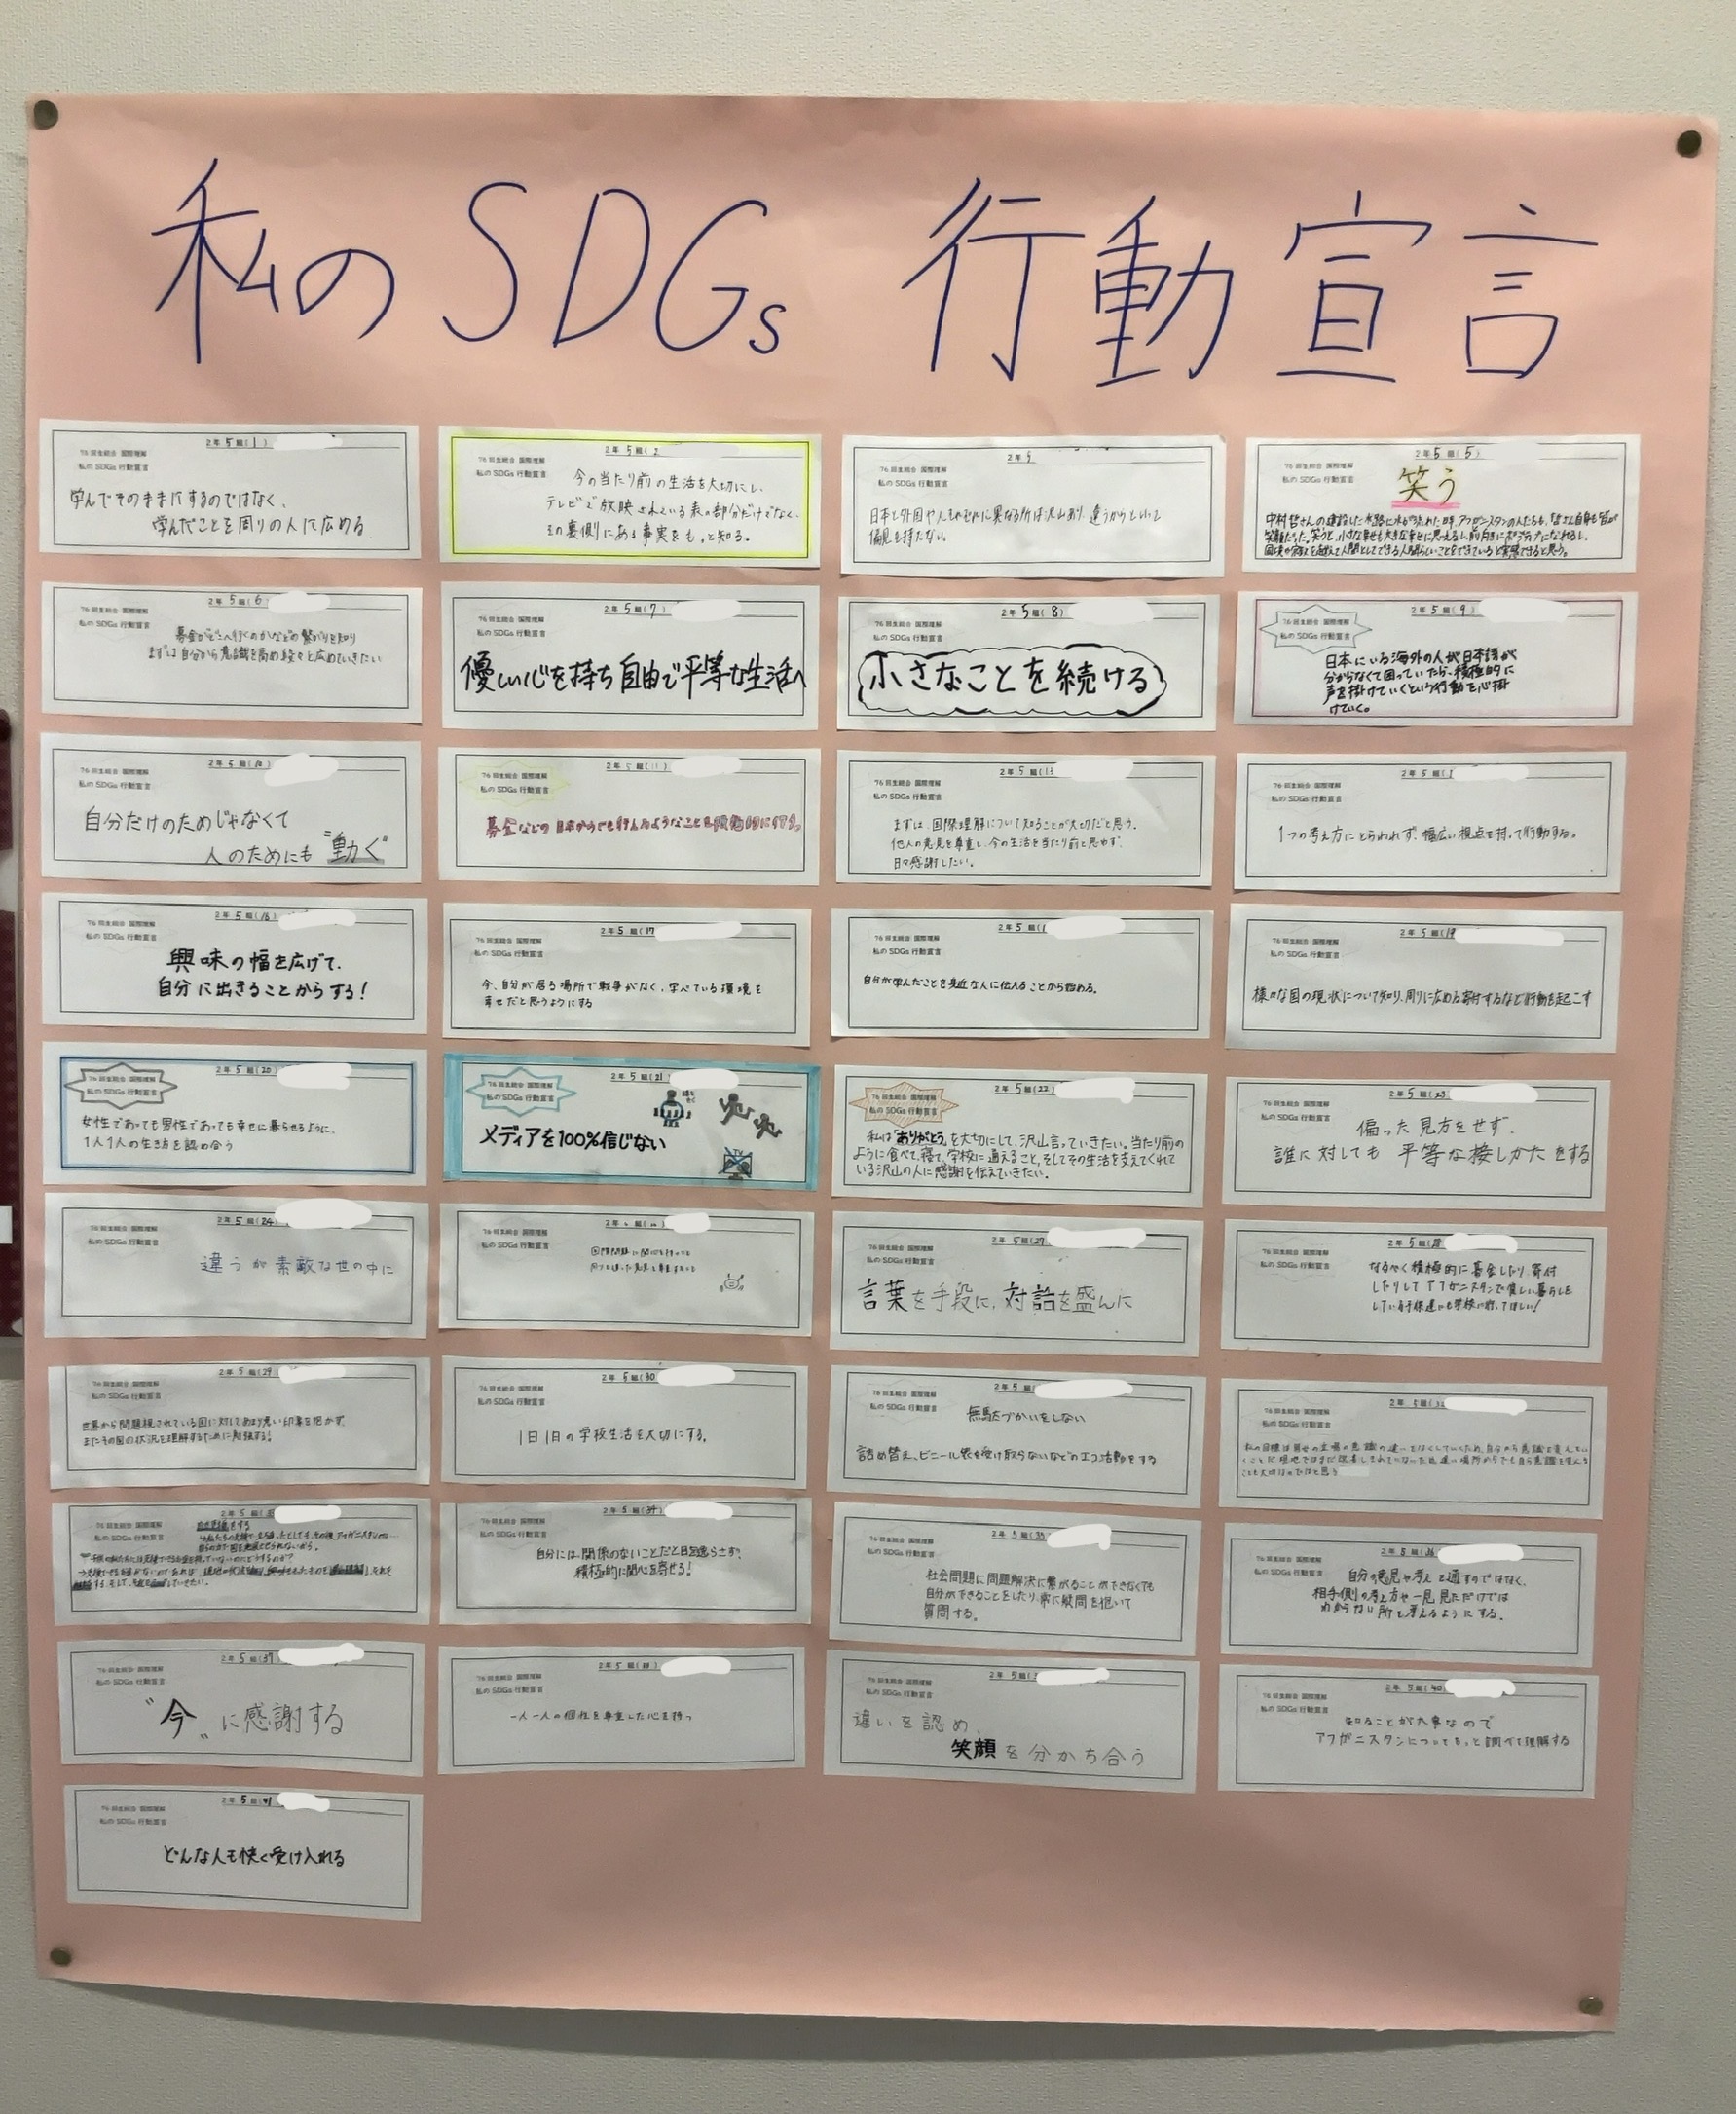 私のSDGs 行動宣言
2年 5組(1)
76回生総合 国際理解
私のSDGs 行動宣言
学んでそのままにするのではなく、
学んだことを周りの人に広める
2年 5組(2
私のSDGs 行動宣言
今の当たり前の生活を大切にし、
テレビで放映されている表の部分だけでなく、
その裏側にある事実をもっと知る。
2年 5
76回生総合 国際理解
私のSDGs 行動宣言
日本と外国や人もそれぞれに異なる所は沢山あり、違うからといって
偏見を持たない。
2年5組(5)
76回生総合 国際理解
私のSDGs 行動宣言
笑う
中村哲さんの建設した水路に水が流れた時、アフガニスタンの人たちも、
笑顔だった。笑うと、小さな幸せも大きな幸せに思えるし、前向きにポジティブになれるし、
国境や言語を越えて人間としてできる人間らしいことをできていると実感できると思う。
2年 5組(6)
76回生総合 国際理解
私のSDGs 行動宣言
募金がどこへ行くのかなどの繋がりを知り
まずは自分から意識を高め段々と広めていきたい
2年 5組(7)
76回生総合 国際理解
私のSDGs 行動宣言
優しい心を持ち自由で平等な生活へ
2年 5組(8)
76回生総合 国際理解
私のSDGs 行動宣言
小さなことを続ける
2年 5組(9)
76回生総合 国際理解
私のSDGs 行動宣言
日本にいる海外の人が日本語が
分からなくて困っていたら、積極的に
声を掛けていくという行動を心掛
けていく。
2年 5組(10)
76回生総合 国際理解
私のSDGs 行動宣言
自分だけのためじゃなくて
人のためにも "動く"
2年 5組(11)
76回生総合 国際理解
私のSDGs 行動宣言
募金などの日本からでも行えるようなことを積極的に行う。
2年 5組(13
76回生総合 国際理解
私のSDGs 行動宣言
まずは、国際理解について知ることが大切だと思う。
他人の意見を尊重し、今の生活を当たり前と思わず、
日々感謝したい。
2年 5組(1
76回生総合 国際理解
私のSDGs 行動宣言
1つの考え方にとらわれず、幅広い視点を持って行動する。
2年 5組(16)
76回生総合 国際理解
私のSDGs 行動宣言
興味の幅を広げて、
自分に出きることからする!
2年5組(17
76回生総合 国際理解
私のSDGs 行動宣言
今、自分が居る場所で戦争がなく、学べている環境を
幸せだと思うようにする
2年 5組(1
76回生総合 国際理解
私のSDGs 行動宣言
自分が学んだことを身近な人に伝えることから始める。
2年 5組(19
76回生総合 国際理解
私のSDGs 行動宣言
様々な国の現状について知り、周りに広める寄付するなど行動を起こす
2年 5組(20)
76回生総合 国際理解
私のSDGs 行動宣言
女性であっても男性であっても幸せに暮らせるように、
1人1人の生き方を認め合う
2年 5組(21
76回生総合 国際理解
私のSDGs 行動宣言
メディアを100%信じない
TV
2年 5組(22)
76回生総合 国際理解
私のSDGs 行動宣言
私は「ありがとう」を大切にして、沢山言っていきたい。当たり前の
ように食べて、寝て、学校に通えること、そしてその生活を支えてくれて
いる沢山の人に感謝を伝えていきたい。
2年 5組(23
76回生総合 国際理解
私のSDGs 行動宣言
偏った見方をせず、
誰に対しても 平等な接しかたをする
2年 5組(24)
76回生総合 国際理解
私のSDGs 行動宣言
違うが素敵な世の中に
76回生総合 国際理解
私のSDGs 行動宣言
2年 5組(27
76回生総合 国際理解
私のSDGs 行動宣言
言葉を手段に、対話を盛んに
2年 5組(28
76回生総合 国際理解
私のSDGs 行動宣言
なるべく積極的に募金したり、寄付
したりしてアフガニスタンで貧しい暮らしを
している子供達にも学校に行ってほしい!
2年 5組(29
76回生総合 国際理解
私のSDGs 行動宣言
世界から問題視されている国に対してあまり悪い印象を抱かず、
またその国の状況を理解するために勉強する!
2年 5組(30
76回生総合 国際理解
私のSDGs 行動宣言
1日1日の学校生活を大切にする。
2年 5組
76回生総合 国際理解
私のSDGs 行動宣言
無駄づかいをしない
詰め替え、ビニール袋を受け取らないなどのエコ活動をする
76回生総合 国際理解
私のSDGs 行動宣言
2年 5組(3
76回生総合 国際理解
私のSDGs 行動宣言
2年 5組(34)
76回生総合 国際理解
私のSDGs 行動宣言
自分には関係のないことだと目を逸らさず、
積極的に関心を寄せる!
2年 5組(35
76回生総合 国際理解
私のSDGs 行動宣言
社会問題に問題解決に繋がることができなくても
自分ができることをしたり、常に疑問を抱いて
質問する。
2年 5組(36
76回生総合 国際理解
私のSDGs 行動宣言
自分の意見や考えを通すのではなく、
相手側の考え方や一見見ただけでは
わからない所を考えるようにする。
2年 5組(37
76回生総合 国際理解
私のSDGs 行動宣言
"今"に感謝する
2年 5組(38)
76回生総合 国際理解
私のSDGs 行動宣言
一人一人の個性を尊重した心を持つ
2年 5組(3
76回生総合 国際理解
私のSDGs 行動宣言
違いを認め、
笑顔を分かち合う
2年 5組(40)
76回生総合 国際理解
私のSDGs 行動宣言
知ることが大事なので
アフガニスタンについてもっと調べて理解する
2年 5組(41
76回生総合 国際理解
私のSDGs 行動宣言
どんな人も快く受け入れる